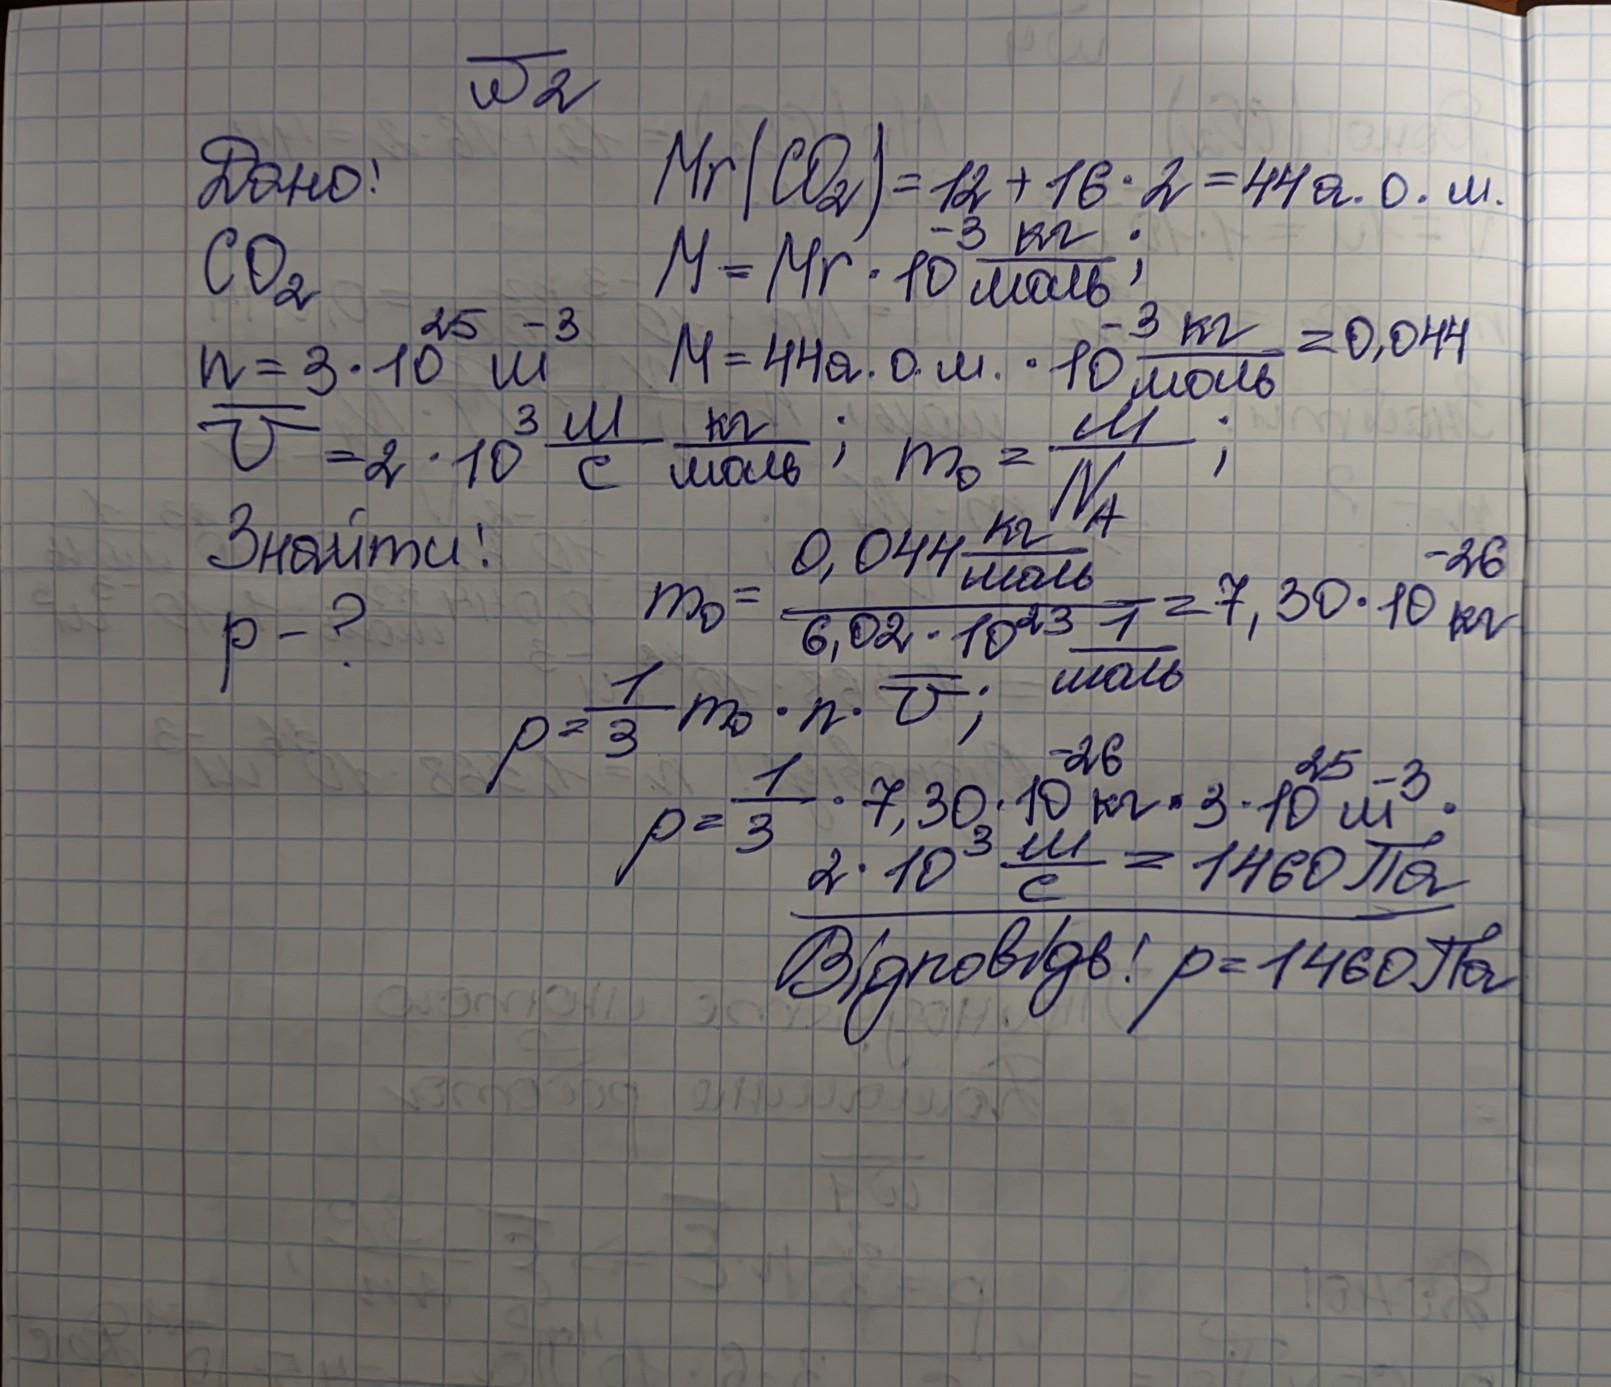 №2
Дано:
CO₂
n = 3·10²⁵ м⁻³
v̅ = 2·10³ м/с
Знайти:
p - ?
Mr(CO₂) = 12 + 16·2 = 44 а.о.м.
M = Mr·10⁻³ кг/моль;
M = 44 а.о.м. · 10⁻³ кг/моль = 0,044
кг/моль; m₀ = M/N_A;
m₀ = 0,044 кг/моль / 6,02·10²³ 1/моль = 7,30·10⁻²⁶ кг
p = 1/3 m₀·n·v̅;
p = 1/3 · 7,30·10⁻²⁶ кг · 3·10²⁵ м⁻³ ·
2·10³ м/с = 1460 Па
Відповідь: p = 1460 Па